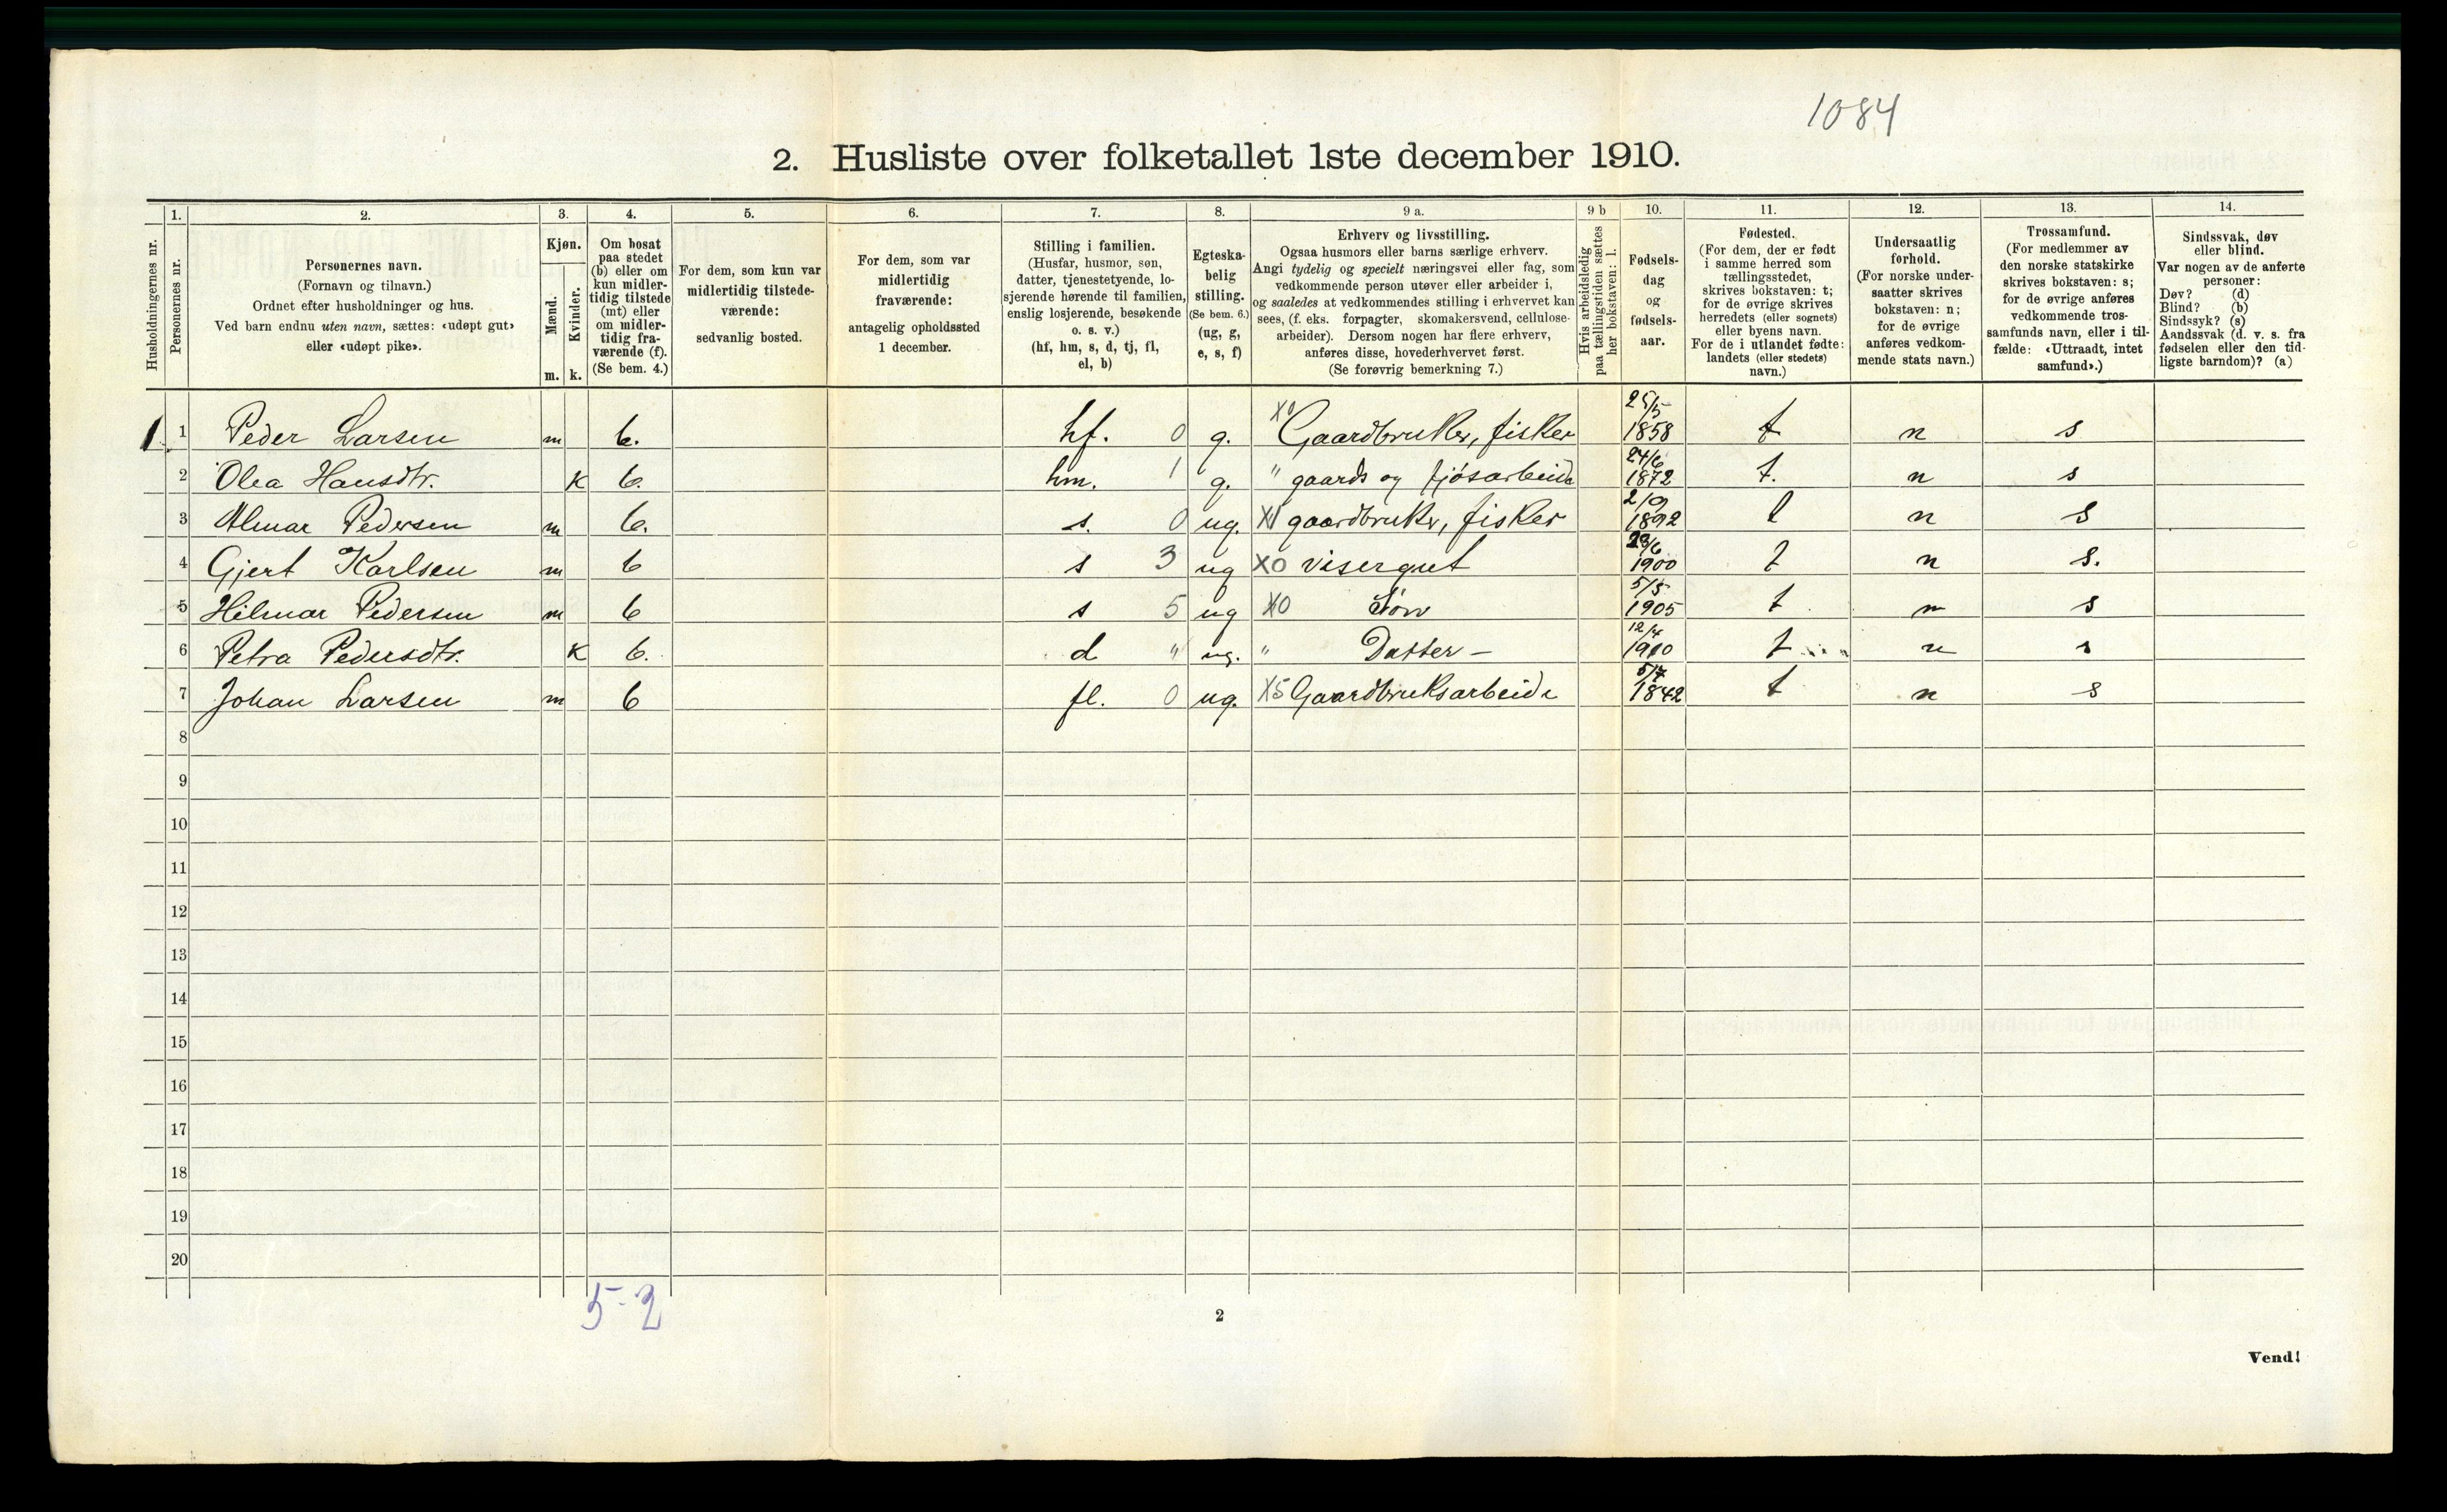 1084
2. Husliste over folketallet 1ste december 1910.
1. 2. 3. 4. 5. 6. 7. 8. 9 a. 9 b 10. 11. 12. 13. 14.
Husholdningernes nr.
Personernes nr.
Personernes navn.
(Fornavn og tilnavn.)
Ordnet efter husholdninger og hus.
Ved barn endnu uten navn, sættes: «udøpt gut»
eller «udøpt pike».
Kjøn.
Mænd.
Kvinder.
m. k.
Om bosat
paa stedet
(b) eller om
kun midler-
tidig tilstede
(mt) eller
om midler-
tidig fra-
værende (f).
(Se bem. 4.)
For dem, som kun var
midlertidig tilstede-
værende:
sedvanlig bosted.
For dem, som var
midlertidig
fraværende:
antagelig opholdssted
1 december.
Stilling i familien.
(Husfar, husmor, søn,
datter, tjenestetyende, lo-
sjerende hørende til familien,
enslig losjerende, besøkende
o. s. v.)
(hf, hm, s, d, tj, fl,
el, b)
Egteska-
belig
stilling.
(Se bem. 6.)
(ug, g,
e, s, f)
Erhverv og livsstilling.
Ogsaa husmors eller barns særlige erhverv.
Angi tydelig og specielt næringsvei eller fag, som
vedkommende person utøver eller arbeider i,
og saaledes at vedkommendes stilling i erhvervet kan
sees, (f. eks. forpagter, skomakersvend, cellulose-
arbeider). Dersom nogen har flere erhverv,
anføres disse, hovederhvervet først.
(Se forøvrig bemerkning 7.)
Hvis arbeidsledig
paa tællingstiden sættes
her bokstaven: l.
Fødsels-
dag
og
fødsels-
aar.
Fødested.
(For dem, der er født
i samme herred som
tællingsstedet,
skrives bokstaven: t;
for de øvrige skrives
herredets (eller sognets)
eller byens navn.
For de i utlandet fødte:
landets (eller stedets)
navn.)
Undersaatlig
forhold.
(For norske under-
saatter skrives
bokstaven: n;
for de øvrige
anføres vedkom-
mende stats navn.)
Trossamfund.
(For medlemmer av
den norske statskirke
skrives bokstaven: s;
for de øvrige anføres
vedkommende tros-
samfunds navn, eller i til-
fælde: «Uttraadt, intet
samfund».)
Sindssvak, døv
eller blind.
Var nogen av de anførte
personer:
Døv? (d)
Blind? (b)
Sindssyk? (s)
Aandssvak (d. v. s. fra
fødselen eller den tid-
ligste barndom)? (a)
1. 1 Peder Larsen m b. hf. 0 g. X0 Gaardbruker, fisker 25/5 1858 t n s
2 Olea Hansdtr. k b. hm. 1 g. " gaards og fjøsarbeide 24/6 1872 t. n s
3 Almar Pedersen m b. s. 0 ug. X1 gaardbruker, fisker 2/9 1892 t n s
4 Gjert Karlsen m b s 3 ug X0 visergut 1900 t n s.
5 Hilmar Pedersen m b s 5 ug X0 Søn 5/5 1905 t n s
6 Petra Pedersdtr. k b. d " ug. " Datter — 12/4 1910 t n s
7 Johan Larsen m b fl. 0 ug. X5 Gaardbruksarbeide 5/7 1842 t n s
8
9
10
11
12
13
14
15
16
17
18
19
20
5-2
2
Vend!